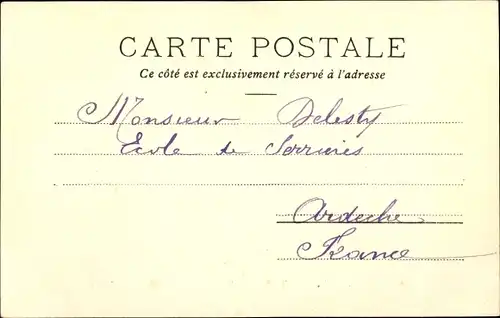 CARTE POSTALE
Ce côté est exclusivement réservé à l'adresse
Monsieur Delesty
Ecole de Serrières
Ardeche
France